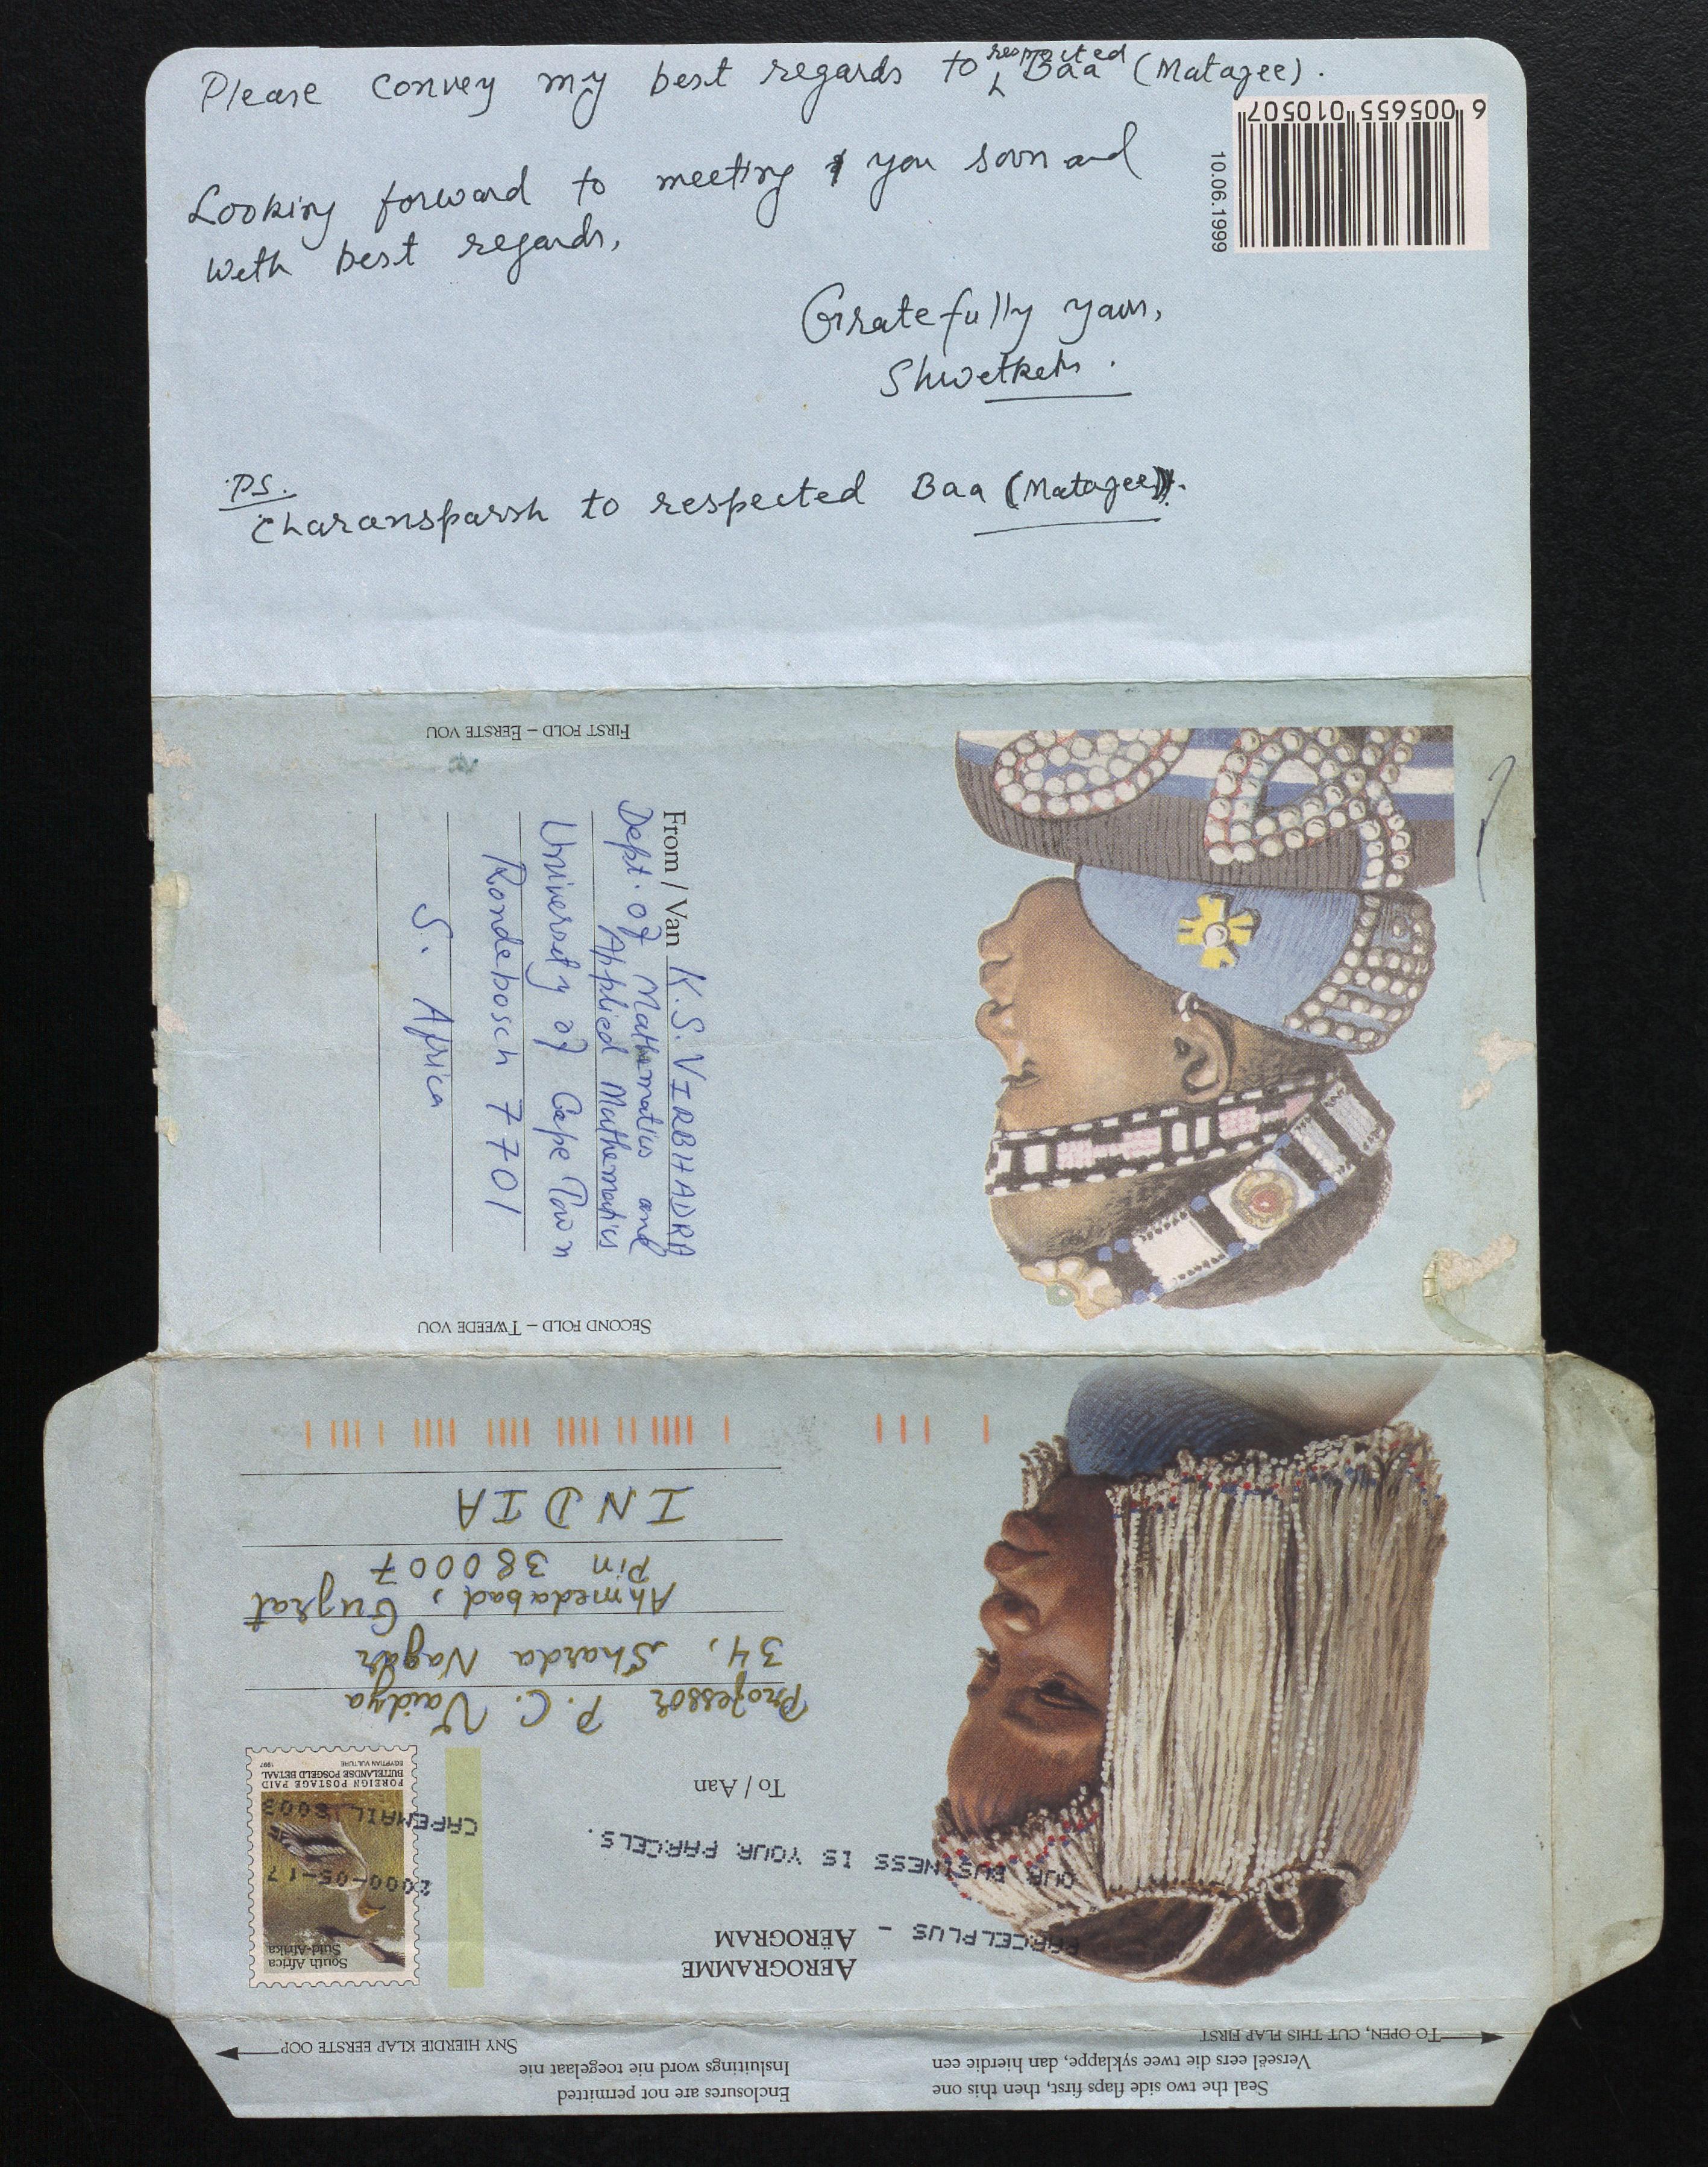 Please convey my best regards to respected Baa (Matajee).
Looking forward to meeting you soon and
with best regards,
Gratefully yours,
Shwetketu.
P.S.
Charansparsh to respected Baa (Matajee).
6 005655 010507
10.06.1999
FIRST FOLD – EERSTE VOU
From / Van K.S. VIRBHADRA
Dept. of Mathematics and
Applied Mathematics
University of Cape Town
Rondebosch 7701
S. Africa
SECOND FOLD – TWEEDE VOU
TO OPEN, CUT THIS FLAP FIRST
SNY HIERDIE KLAP EERSTE OOP
Seal the two side flaps first, then this one
Verseël eers die twee syklappe, dan hierdie een
Enclosures are not permitted
Insluitings word nie toegelaat nie
AEROGRAMME
AËROGRAM
PARCELPLUS –
OUR BUSINESS IS YOUR PARCELS.
South Africa
Suid-Afrika
2000-05-17
CAPEMAIL 8003
FOREIGN POSTAGE PAID
BUITELANDSE POSGELD BETAAL
EGYPTIAN VULTURE 1997
To / Aan
Professor P. C. Vaidya
34, Sharda Nagar
Ahmedabad, Gujrat
Pin 380007
INDIA